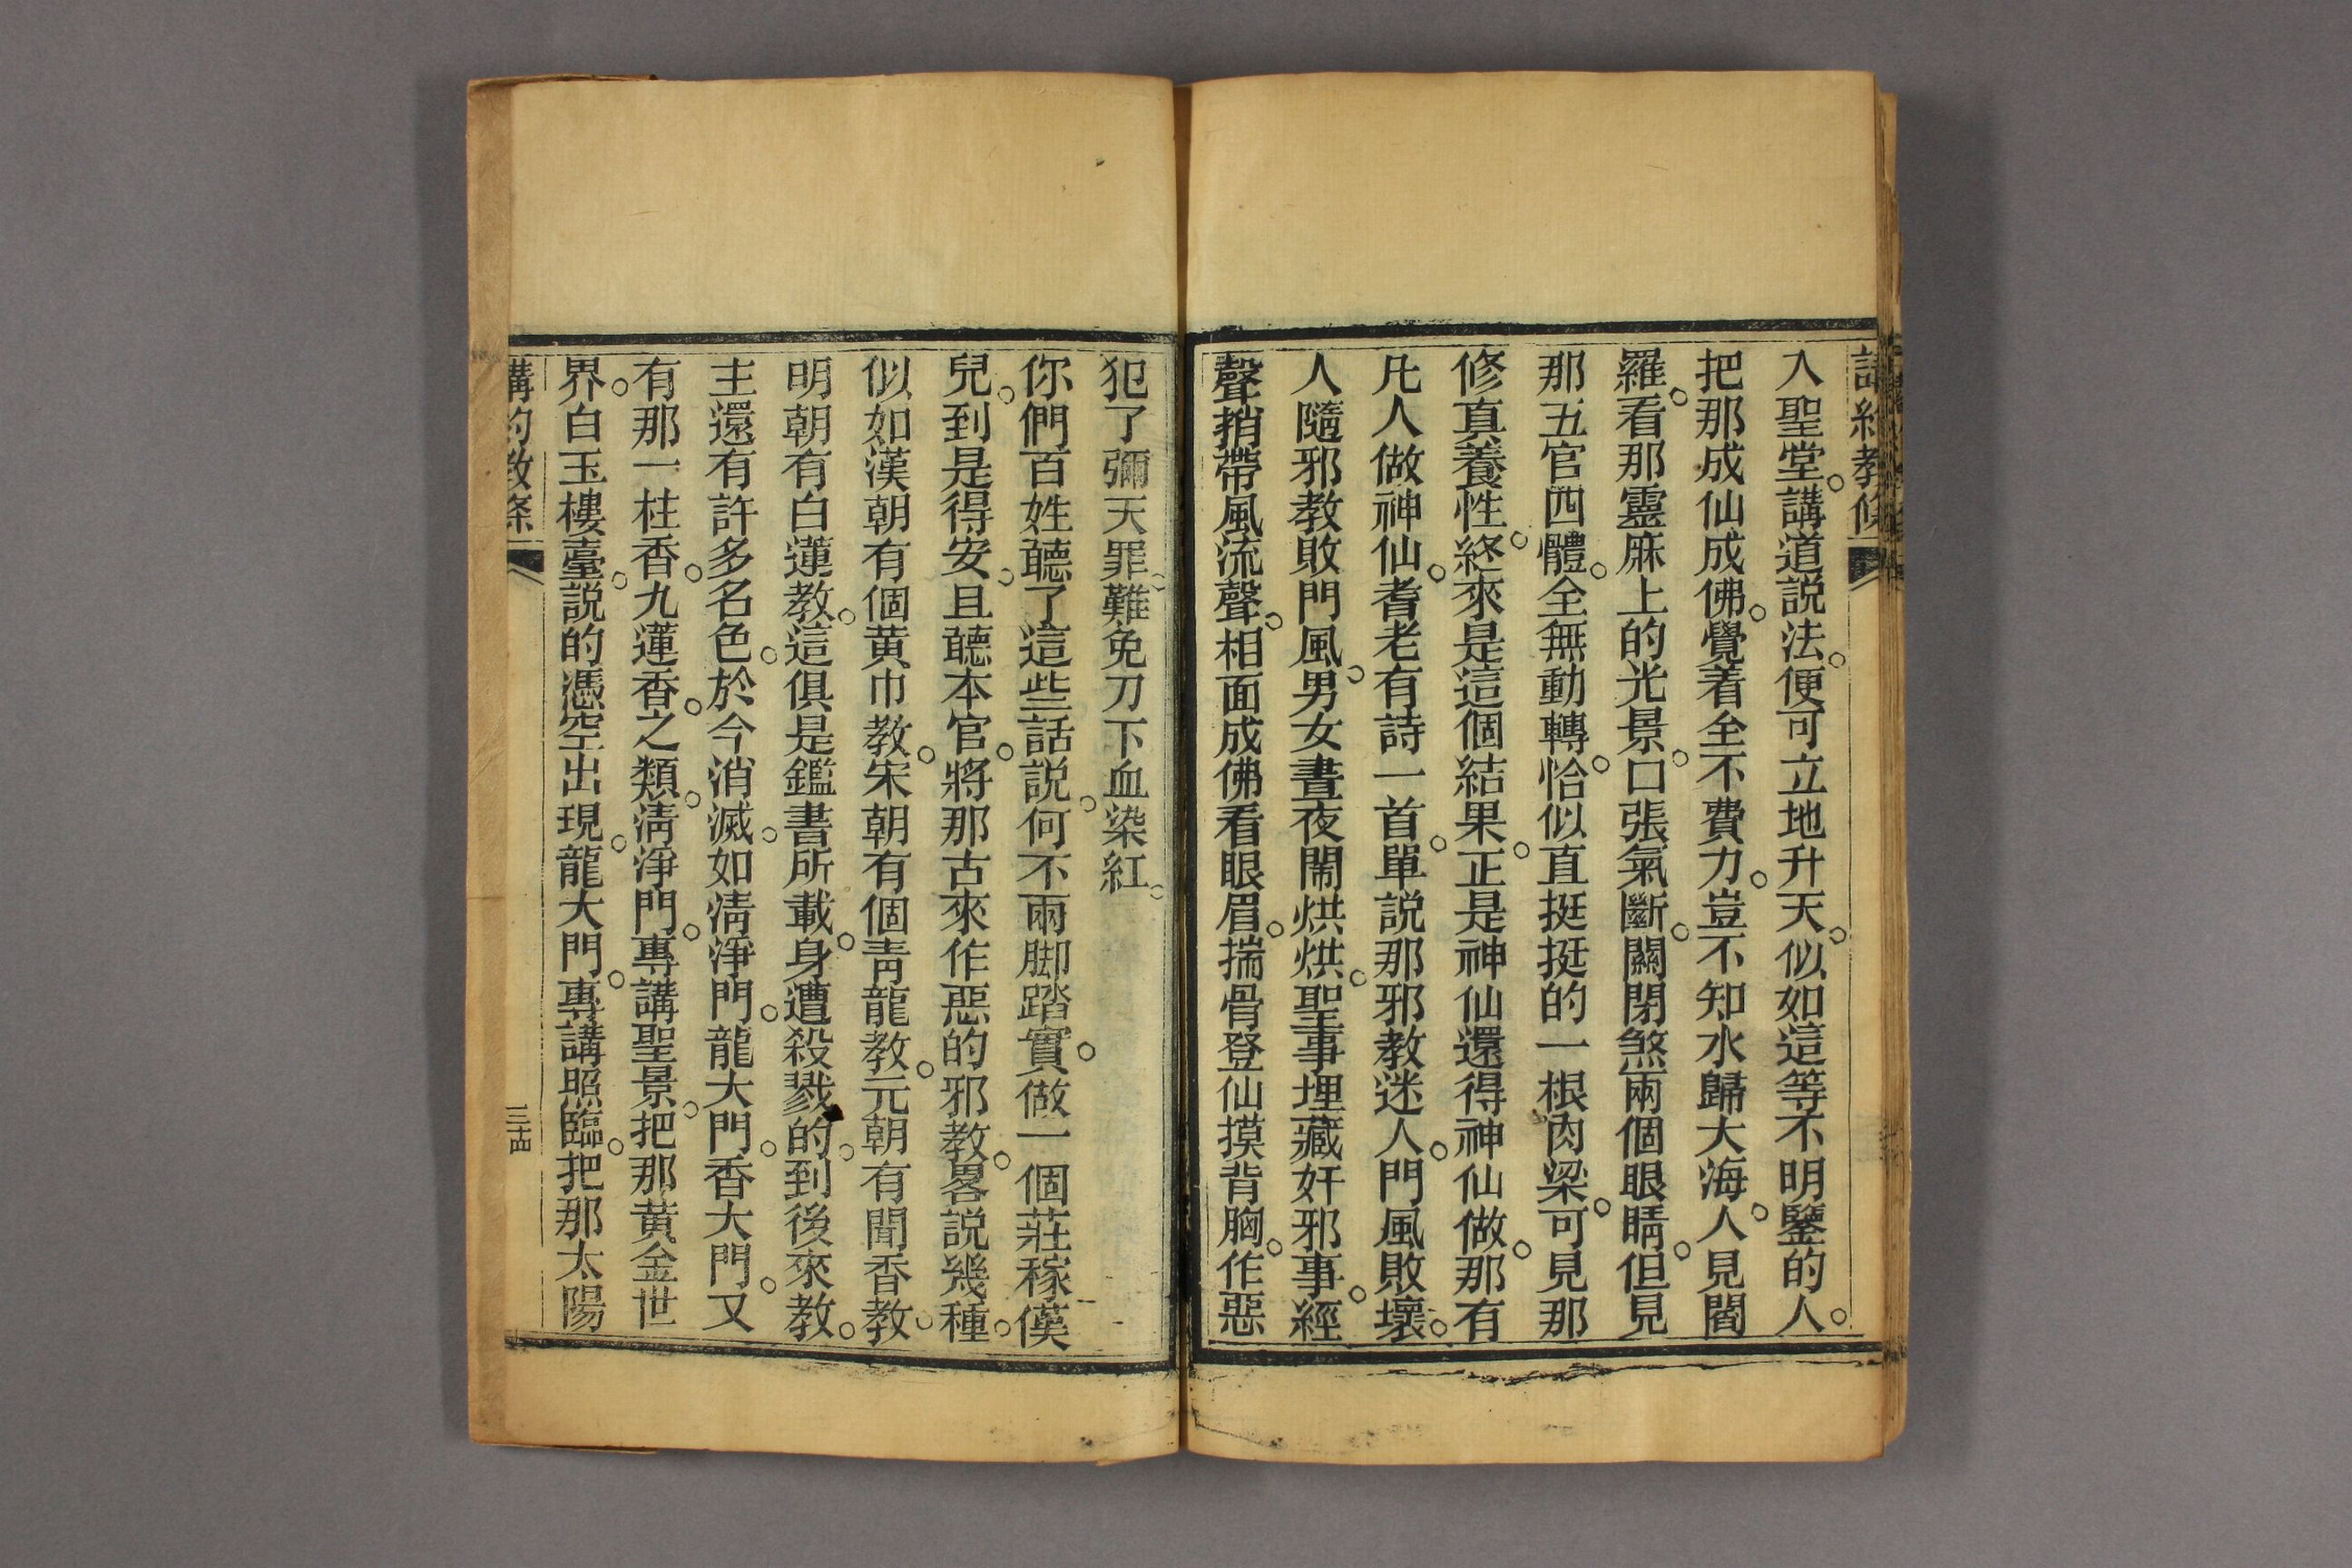 入聖堂。講道説法。便可立地升天。似如這等不明鑒的人。
把那成仙成佛。覺着全不費力。豈不知水歸大海。人見閻
羅。看那靈牀上的光景。口張氣斷。關閉煞兩個眼睛。但見
那五官四體。全無動轉。恰似直挺挺的一根肉梁。可見那
修真養性。終來是這個結果。正是神仙還得神仙做。那有
凡人做神仙。耆老有詩一首。單説那邪教迷人。門風敗壞。
人隨邪教敗門風。男女晝夜鬧烘烘。聖事埋藏奸邪事。經
聲捎帶風流聲。相面成佛看眼眉。揣骨登仙摸背胸。作惡
犯了彌天罪。難免刀下血染紅。
你們百姓聽了這些話說。何不兩脚踏實。做一個莊稼漢
兒。到是得安。且聽本官。將那古來作惡的邪教。畧説幾種。
似如漢朝有個黄巾教。宋朝有個青龍教。元朝有聞香教。
明朝有白蓮教。這俱是鑑書所載。身遭殺戮的。到後來教。
主還有許多名色。於今消滅。如清淨門。龍大門。香大門。又
有那一柱香。九蓮香。之類。清淨門。專講聖景。把那黄金世
界。白玉樓臺。説的憑空出現。龍大門。專講照臨。把那太陽
講約教條
三十四